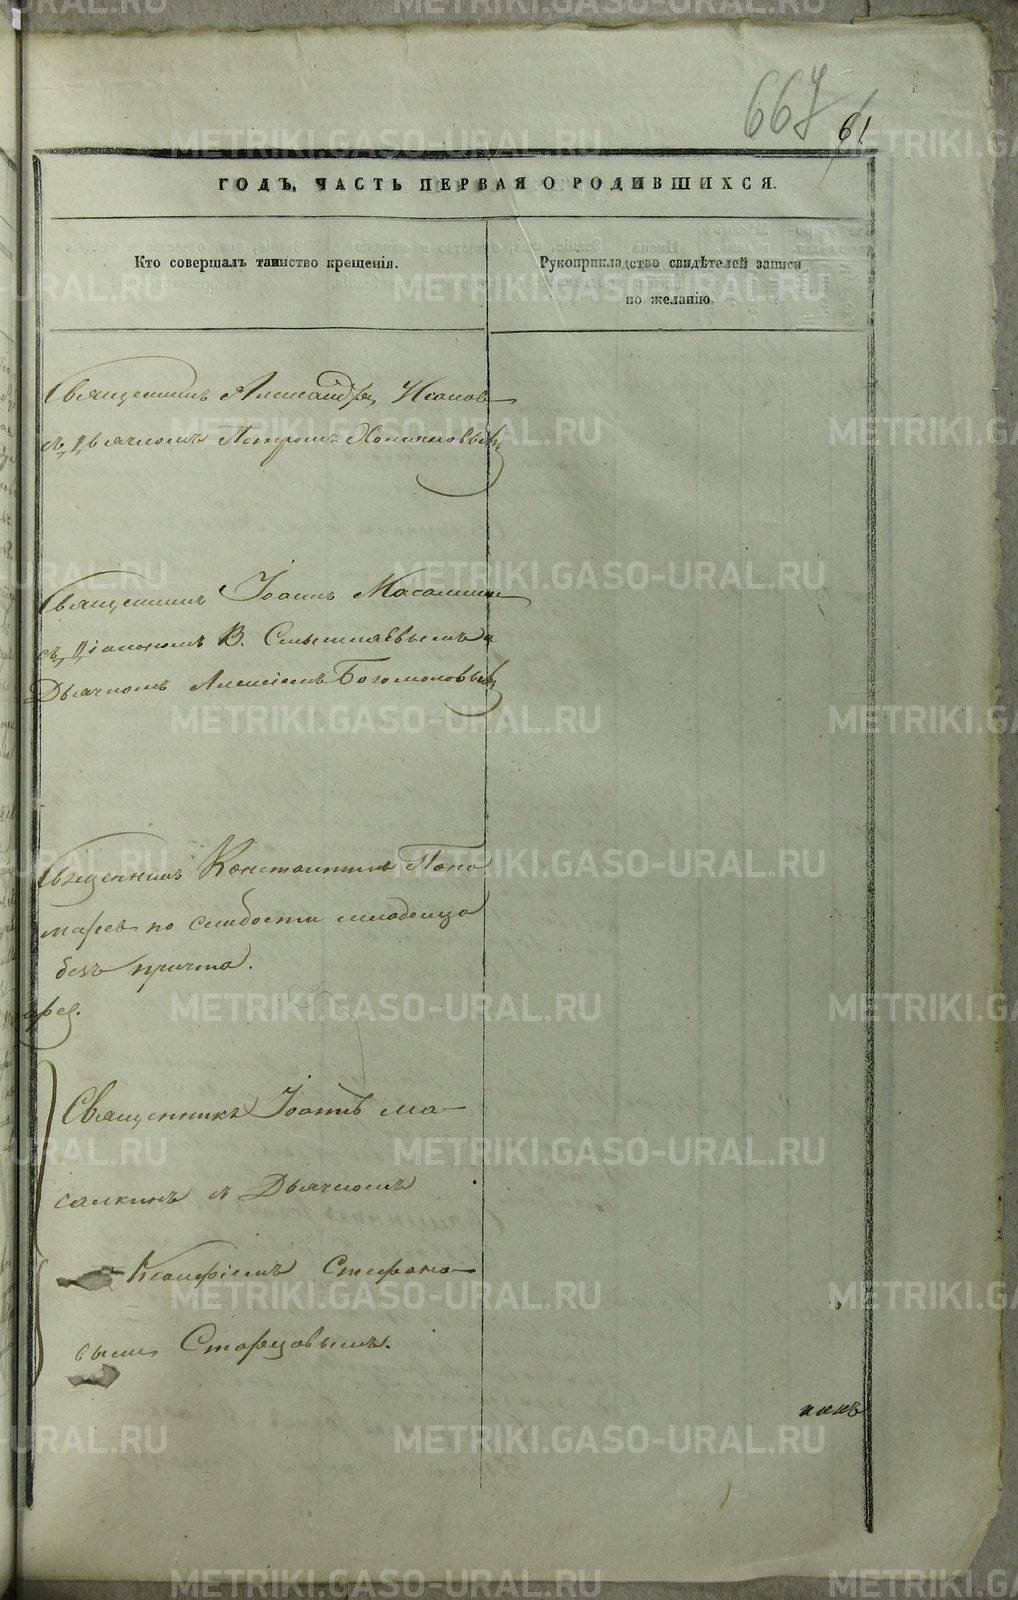 667
61
ГОДЪ, ЧАСТЬ ПЕРВАЯ О РОДИВШИХСЯ.
Кто совершалъ таинство крещенія.
Рукоприкладство свидѣтелей записи
по желанію.
Священникъ Александръ
съ Дьячкомъ Петромъ Хомяковымъ
Священникъ Іоаннъ Масалкинъ
съ Діакономъ В. Смышляевымъ и
Дьячкомъ Алексіемъ Богомоловымъ
Священникъ Константинъ Поно
маревъ по слабости младенца
безъ причта.
Священникъ Іоаннъ Ма
салкинъ съ Дьячкомъ
Стефано
вымъ Старцовымъ.
METRIKI.GASO-URAL.RU